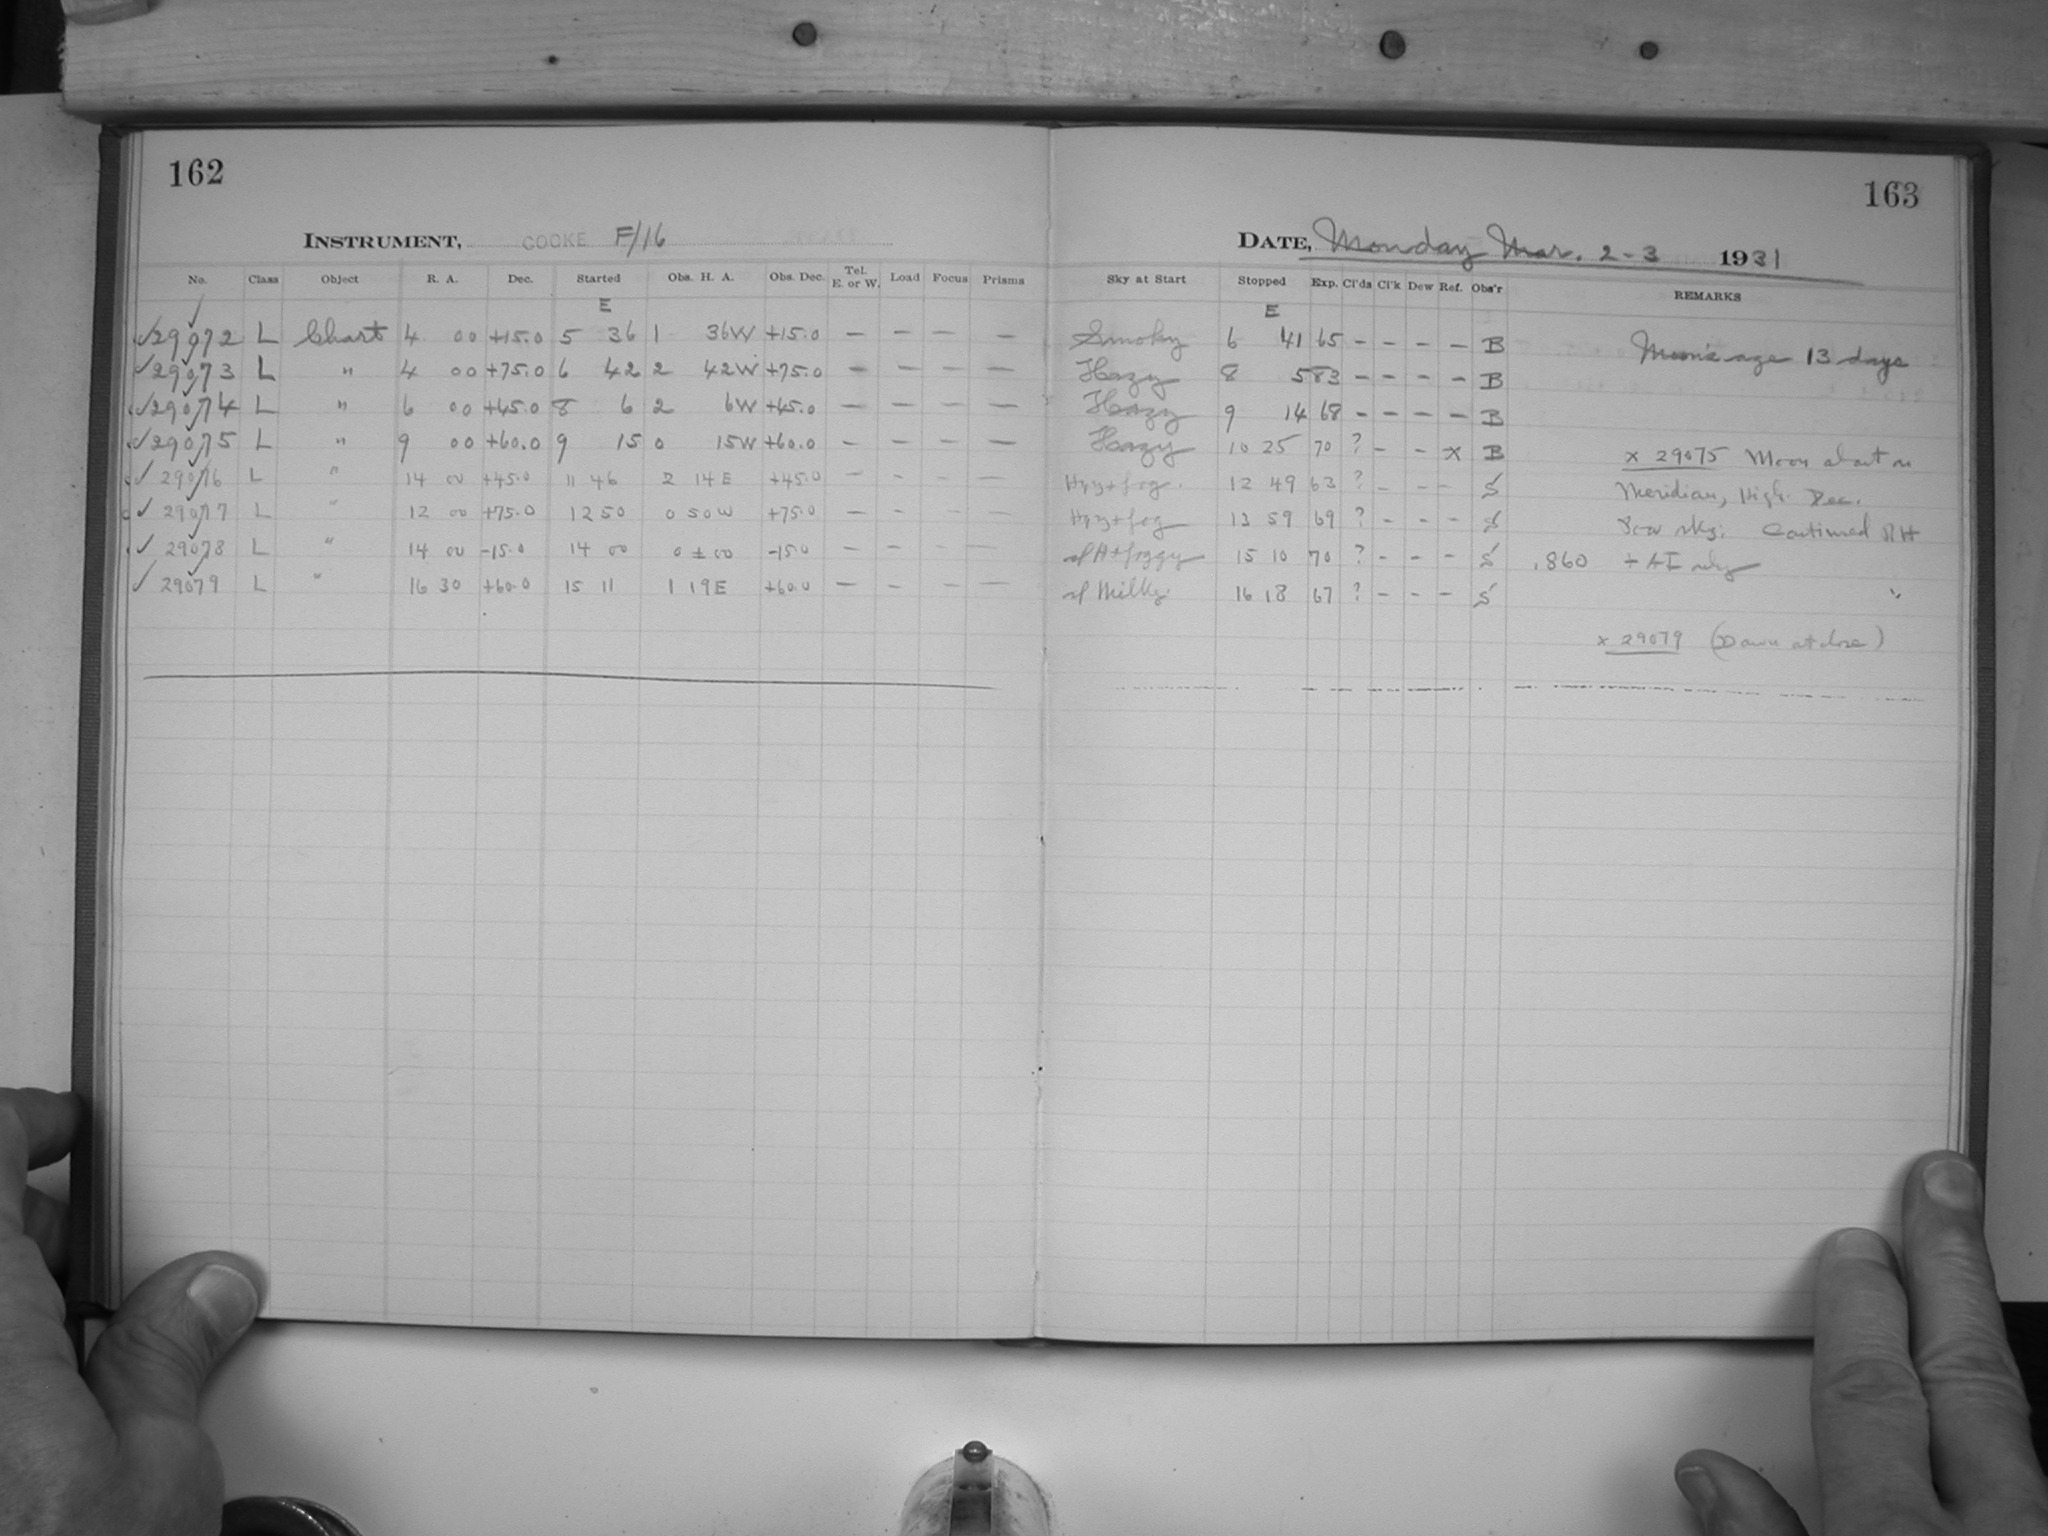 162
163
INSTRUMENT, COOKE F/16
DATE, Monday Mar. 2-3 1931
No. Class Object R. A. Dec. Started Obs. H. A. Obs. Dec. Tel. E. or W. Load Focus Prisms Sky at Start Stopped Exp. Cl'ds Cl'k Dew Ref. Obs'r REMARKS
E E
✓29072 L Chart 4 00 +15.0 5 36 1 36W +15.0 — — — — Smoky 6 41 65 - - - - B Moon's age 13 days
✓29073 L " 4 00 +75.0 6 42 2 42W +75.0 — — — — Hazy 8 5 83 - - - - B
✓29074 L " 6 00 +45.0 8 6 2 6W +45.0 — — — — Hazy 9 14 68 - - - - B
✓29075 L " 9 00 +60.0 9 15 0 15W +60.0 — — — — Hazy 10 25 70 ? - - x B x 29075 Moon about on
✓29076 L " 14 00 +45.0 11 46 2 14E +45.0 — — — — Hzy+fog. 12 49 63 ? - - - S Meridian, High Dec.
✓29077 L " 12 00 +75.0 12 50 0 50W +75.0 — — — — Hzy+fog 13 59 69 ? - - - S Poor sky. Continued RH
✓29078 L " 14 00 -15.0 14 00 0 ± 00 -15.0 — — — — +foggy 15 10 70 ? - - - S .860 + AI only
✓29079 L " 16 30 +60.0 15 11 1 19E +60.0 — — — — Milky. 16 18 67 ? - - - S "
x 29079 (Dawn at close)